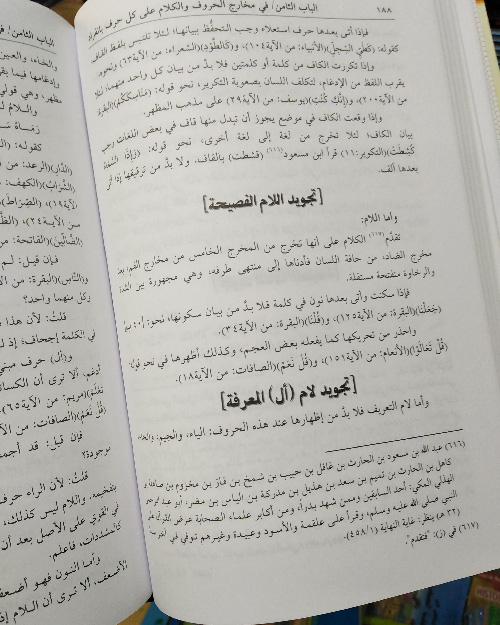 ١٨٨ الباب الثامن/ في مخارج الحروف والكلام على كل حرف بانفراده
فإذا أتى بعدها حرف استعلاء وجب التحفُّظ ببيانها؛ لئلا تلتبس بلفظ القاف
كقوله: (كَطَيِّ السِّجِلِّ)(الأنبياء: من الآية١٠٤)، و(كَالطَّوْدِ)(الشعراء: من الآية٦٣) ونحوه.
وإذا تكررت الكاف من كلمة أو كلمتين فلا بدَّ من بيان كل واحد منهما؛ لئلا
يقرب اللفظ من الإدغام، لتكلف اللسان بصعوبة التكرير، نحو قوله: (مَنَاسِكَكُمْ)(البقرة:
من الآية٢٠٠)، و(إِنَّكِ كُنْتِ)(يوسف: من الآية٢٩) على مذهب المظهر.
وإذا وقعت الكاف في موضع يجوز أن تبدل منها قاف في بعض اللغات وجب
بيان الكاف؛ لئلا تخرج من لغة إلى لغة أخرى، نحو قوله: (وَإِذَا السَّمَاءُ
كُشِطَتْ)(التكوير:١١) قرأ ابن مسعود(٦١٦) (قشطت) بالقاف. ولا بدَّ من ترقيقها إذا أتى
بعدها ألف.
[تجويد اللام الفصيحة]
وأما اللام:
تقدَّم(٦١٧) الكلام على أنها تخرج من المخرج الخامس من مخارج الفم، بعد
مخرج الضاد، من حافة اللسان فأدناها إلى منتهى طرفه، وهي مجهورة بين الشدة
والرخاوة منفتحة مستفلة.
فإذا سكنت وأتى بعدها نون في كلمة فلا بدَّ من بيان سكونها، نحو:
(جَعَلْنَا)(البقرة: من الآية١٢٥)، و(قُلْنَا)(البقرة: من الآية٣٤).
واحذر من تحريكها كما يفعله بعض العجم، وكذلك أظهرها في نحو قوله:
(قُلْ تَعَالَوْا)(الأنعام: من الآية١٥١)، و(قُلْ نَعَمْ)(الصافات: من الآية١٨).
[تجويد لام (أل) المعرفة]
وأما لام التعريف فلا بدَّ من إظهارها عند هذه الحروف: الباء، والجيم،
(٦١٦) عبد الله بن مسعود بن الحارث بن غافل بن حبيب بن شمخ بن فار بن مخزوم بن صاهلة بن
كاهل بن الحارث بن تميم بن سعد بن هذيل بن مدركة بن الياس بن مضر، أبو عبد الرحمن
الهذلي المكي: أحد السابقين وممن شهد بدراً، ومن أكابر علماء الصحابة عرض القرآن على
النبي صلى الله عليه وسلم، وقرأ على علقمة والأسود وعبيدة وغيرهم توفي في
(٣٢ هـ) ينظر: غاية النهاية (٤٥٨/١).
(٦١٧) في (ز): "فتقدم".
الباب الثامن/ في
والخاء، والعين
وإدغامها فيما بقي
مظهر، وهي قولي
واللام لـ
رَمَاهُ سَـ
كقوله: (الـ
(الدَّارِ)(الرعد: من
(الشَّرَابُ)(الكهف:
الآية١٩)، (الصِّرَاطَ)
من الآية٢٤)، (الظَّـ
الضَّالِّينَ)(الفاتحة: من
فإن قيل: لم
و(النَّاسِ)(البقرة: من الآ
وكل منهما واحد؟
قلتُ: لأن هذا
في الكلمة إجحاف، إذ لـ
و(أل) حرف مبني
أدغم. ألا ترى أن الكسائي
تَعْلَمُ)(مريم: من الآية٦٥)
قُلْ نَعَمْ)(الصافات: من الآ
فإن قيل: قد أجمعـ
موجودة؟
قلتُ: لأن الراء حرف
بتفخيمه، واللام ليس كذلك،
في القوي على الأصل بعد أن
كالمشددات، فاعلم.
وأما النون فهو أضعف
الأضعف، ألا ترى أن اللام إذا